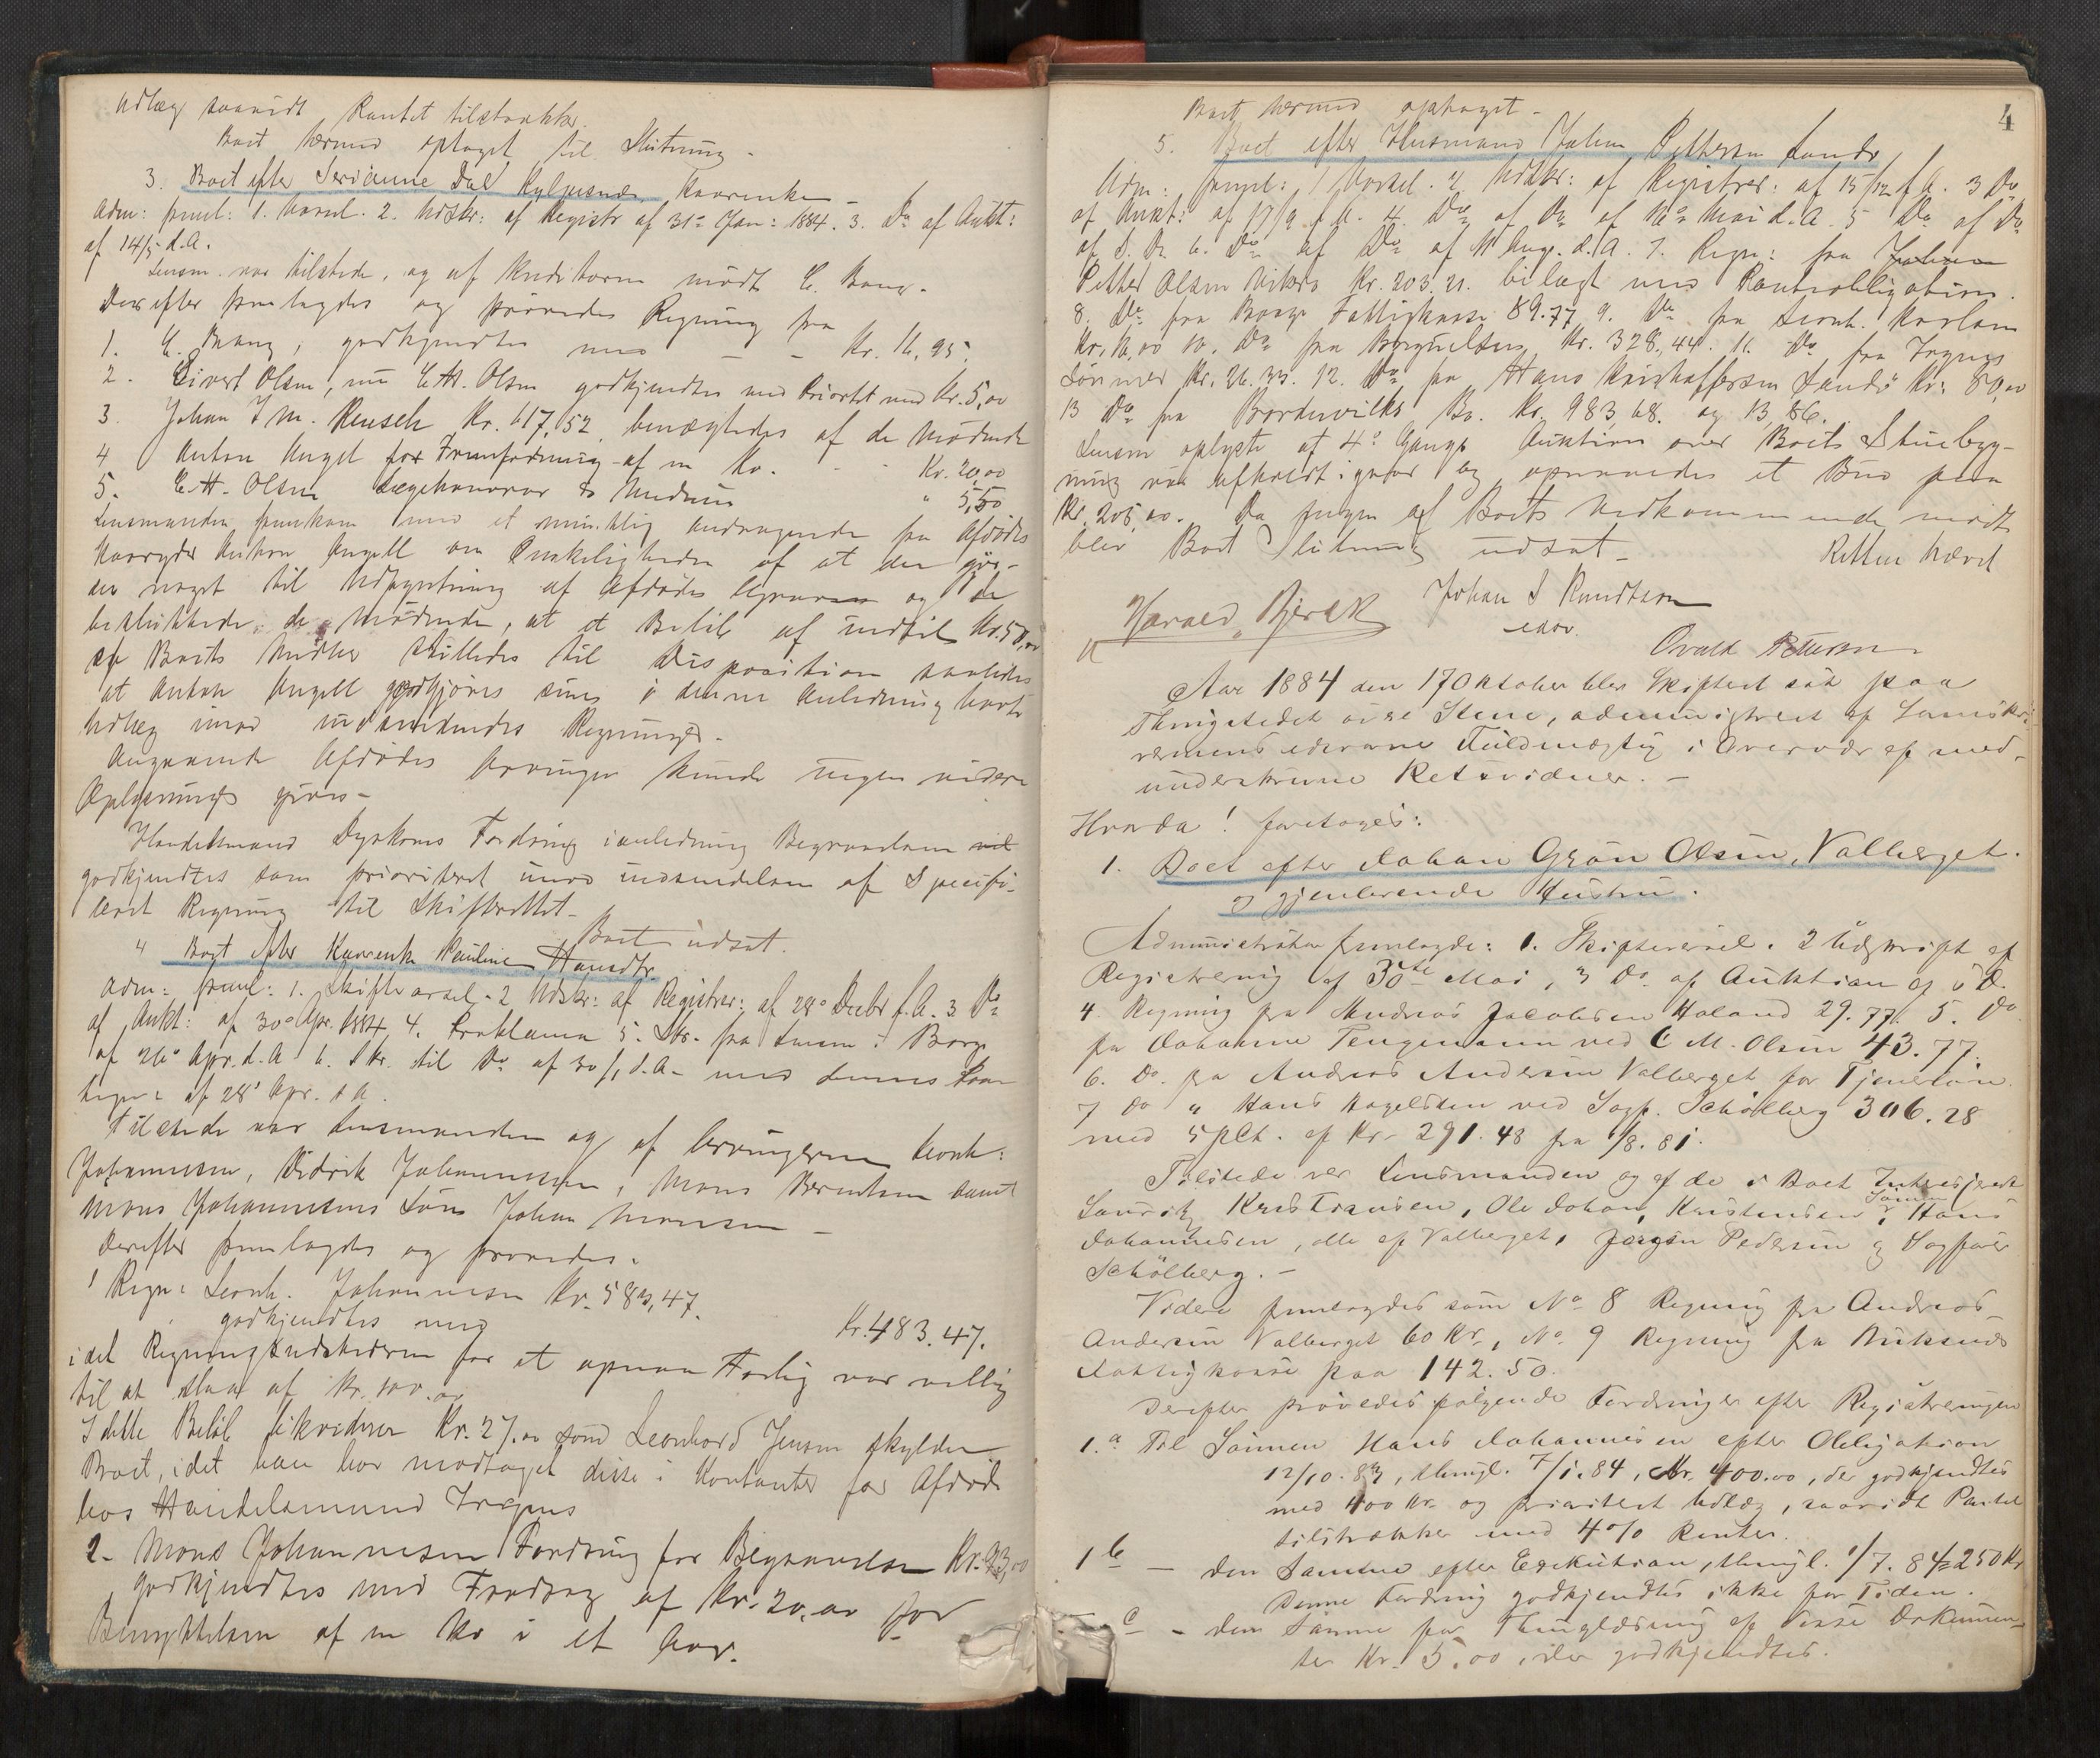 Udlæg saavidt Pantet tilstrækker.
Boet hermed optaget til Slutning -
3. Boet efter Serianne Dal Kylpesnæs, Kaarenke -
Adm: freml: 1. Varsel. 2. Udskr: af Registr af 31te Jan: 1884. 3. Do af Aukt:
af 14/5 d.A.
Lensm. var tilstede, og af Kreditorer mødte C. Bang.
Derefter fremlagdes og prøvedes Regning fra
1. C. Bang, godkjendtes med - - Kr. 16,95.
2. Sivert Olsen, nu C.H. Olsen godkjendtes med Prioritet med Kr. 5,00
3. Johan I M. Rensch Kr. 617,52 benægtedes af de Mødende
4 Anton Angel for Fremfodning af en Ko. - - Kr. 20,00
5. C.H. Olsen Lægehonorar & Medicin " 5,50
Lensmanden fremkom med et mundtlig Andragende fra Afdødes
Anton Angell om Ønskeligheden af at der gjø-
res noget til Udpyntning af Afdødes Grav og de
besluttede de Mødende, at et Beløb af indtil Kr. 50,00
af Boets Midler stilledes til Disposition saaledes
at Anton Angell godtgjøres sine i denne Anledning havte
Udlæg imod indsendendes Regninger.
Angaaende Afdødes Arvinger kunde ingen videre
Oplysninger gives -
Handelsmand Dyrkorns Fordring i anledning Begravelsen
godkjendtes som prioriteret imod indsendelsen af Specifi-
ceret Regning til Skifteretten -
Boet udsat.
4 Boet efter Kaarenke Pauline Hansdtr.
Adm: freml: 1. Skiftevarsel. 2 Udskr: af Registrer: af 28de Decbr f.A. 3 Do
af Aukt: af 30te Apr. 1884 4. Proklama 5. Skr. fra Lensm i Borge
af 26de Apr. d.A 6. Skr. til Do af 30/1 d.A. - med dennes
af 28de Apr. d A.
Tilstede var Lensmanden og af Arvingerne Leonh:
Johannesen, Didrik Johannessen, Mons Berntsen samt
Mons Johannesens Søn Johan Monsen -
Derefter fremlagdes og prøvedes.
1 Regn: Leonh. Johannesen Kr. 583,47.
godkjendtes med Kr. 483.47.
idet Regningsudstederen for et opnaa Forlig var villig
til at slaa af Kr. 100.00
I dette Beløb likviderer Kr. 27.00 som Leonhard Jensen skylder
Boet, idet han har modtaget disse i Kontanter for Afdøde
hos Handelsmand Irgens
2. Mons Johannesen Fordring for Begravelsen Kr. 93,00
godkjendtes med Fradrag af Kr. 20.00 for
Benyttelsen af en Ko i et Aar.
4
Boet hermed optaget -
5. Boet efter Husmand Johan Pettersen Sandø
Adm: freml: 1 Varsel. 2 Udskr: af Registrer: af 15/12 f.A. 3 Do
af Aukt: af 17/9 f.A. 4. Do af Do af Mai d.A. 5 Do af Do
af S. D. 6. Do af Do af 11 Aug. d.A. 7. Regn: fra Johan
Petter Olsen Kr. 203.21. bilagt med Panteobligation.
8. Do fra Borge Fattigkasse 89.77 9. Do fra Leonh. Karlsen
Kr. 16,00 10. Do fra Borguelsen Kr. 328,44. 11. Do fra Irgens
Kr. 26.33. 12. Do fra Hans Kristoffersen Sandø Kr. 80,00
13 Do fra Bordevilks Bo. Kr. 983,68. og 13,86.
Lensm oplyste at 4de Gangs Auktion over Boets Stuebyg-
ning var afholdt igaar og opnaaedes et Bud paa
Kr. 205,00. Da ingen af Boets Vedkommende mødte
blev Boet Slutning udsat - Retten hævet
Harald Bjerck Johan S Knudtsen
Osvald Petersen
Aar 1884 den 17 Oktober blev Skifteret sat paa
Thingstedet øvre Stene, administreret af Sorenskri-
verens edsvorne Fuldmægtig i Overvær af med-
underskrevne Retsvidner. -
Hvorda! foretoges:
1. Boet efter Johan Grøn Olsen, Valberget.
og gjenlevende Hustru.
Administrator fremlagde: 1. Skiftevarsel. 2 Udskrift af
Registrering af 30te Mai, 3 Do. af Auktion af s D.
4. Regning fra Andreas Jacobsen Holand 29.77. 5. Do
fra Johanne Tengemann ved C M. Olsen 43.77.
6. Do. fra Andreas Andersen Valberget for Tjenerløn
7 Do " Hans Hagelsten ved Sagf. Schølberg 306.28
med 5 pCt. af Kr. 291.48 fra 1/8.81.
Tilstede var Lensmanden og af de i Boet Interesserede
Laurits Kristiansen, Ole Johan Kristensen, Sønnen Hans
Johannesen, alle af Valberget, Jørgen Pedersen og Sagfører
Schølberg. -
Videre fremlagdes som No 8 Regning fra Andreas
Andersen Valberget 60 Kr, No 9 Regning fra Buksnes
Fattigkasse paa 142.50.
Derefter prøvedes følgende Fordringer efter Registreringen
1.a Til Sønnen Hans Johannesen efter Obligation
12/10.83, thingl. 7/1.84, Kr. 400.00, der godkjendtes
med 400 Kr. og prioritert Udlæg, saavidt Pantet
tilstrækker med 4% Renter.
1b - den Samme efter Exekution, thingl. 1/7. 84 250 Kr
Denne Fordring godkjendtes ikke for Tiden.
c - den Samme for Thinglæsning af disse Dokumen-
ter Kr. 5.00, der godkjendtes.